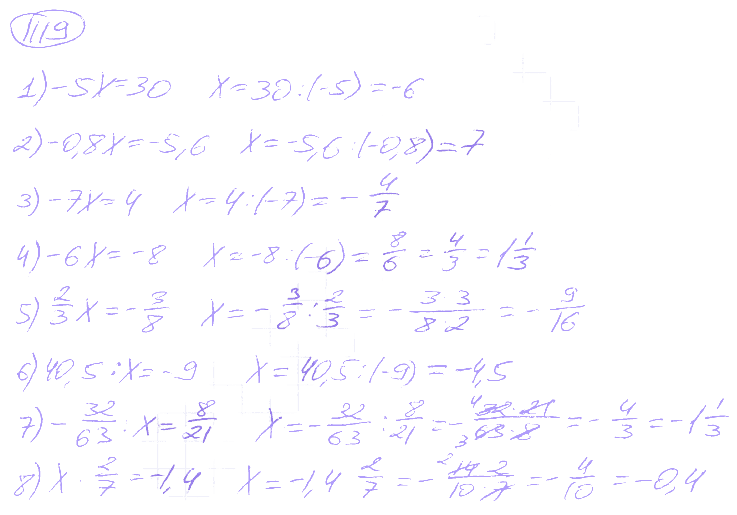 1119
1) -5X=30 X=30:(-5)=-6
2) -0,8X=-5,6 X=-5,6:(-0,8)=7
3) -7X=4 X=4:(-7)=-4/7
4) -6X=-8 X=-8:(-6)=8/6=4/3=1 1/3
5) 2/3 X=-3/8 X=-3/8:2/3=-(3·3)/(8·2)=-9/16
6) 40,5:X=-9 X=40,5:(-9)=-4,5
7) -32/63:X=8/21 X=-32/63:8/21=-(32·21)/(63·8)=-4/3=-1 1/3
8) X·2/7=-1,4 X=-1,4 2/7=-(14·2)/(10·7)=-4/10=-0,4